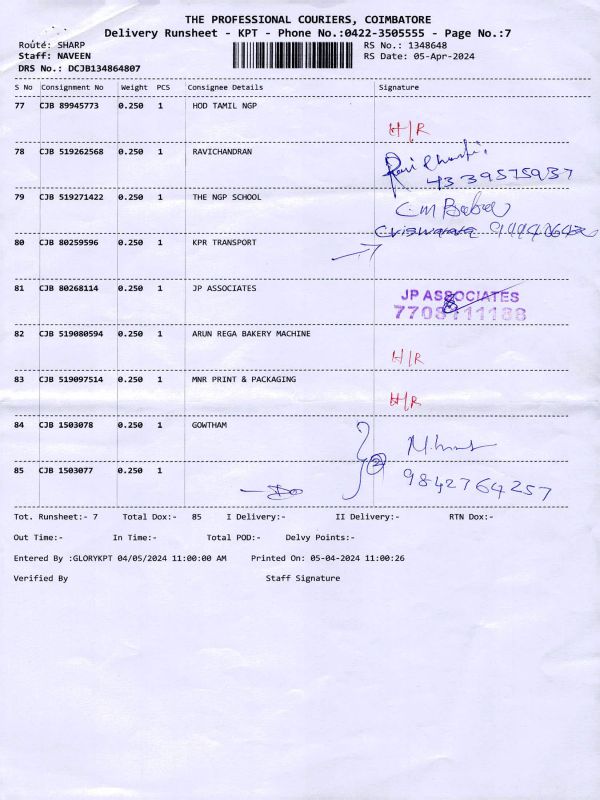 THE PROFESSIONAL COURIERS, COIMBATORE
Delivery Runsheet - KPT - Phone No.:0422-3505555 - Page No.:7
Route: SHARP RS No.: 1348648
Staff: NAVEEN RS Date: 05-Apr-2024
DRS No.: DCJB134864807
S No Consignment No Weight PCS Consignee Details Signature
77 CJB 89945773 0.250 1 HOD TAMIL NGP
H/R
78 CJB 519262568 0.250 1 RAVICHANDRAN
4339575937
79 CJB 519271422 0.250 1 THE NGP SCHOOL
80 CJB 80259596 0.250 1 KPR TRANSPORT
81 CJB 80268114 0.250 1 JP ASSOCIATES
JP ASSOCIATES
82 CJB 519080594 0.250 1 ARUN REGA BAKERY MACHINE
H/R
83 CJB 519097514 0.250 1 MNR PRINT & PACKAGING
H/R
84 CJB 1503078 0.250 1 GOWTHAM
85 CJB 1503077 0.250 1
2
9842764257
Tot. Runsheet:- 7 Total Dox:- 85 I Delivery:- II Delivery:- RTN Dox:-
Out Time:- In Time:- Total POD:- Delvy Points:-
Entered By :GLORYKPT 04/05/2024 11:00:00 AM Printed On: 05-04-2024 11:00:26
Verified By Staff Signature